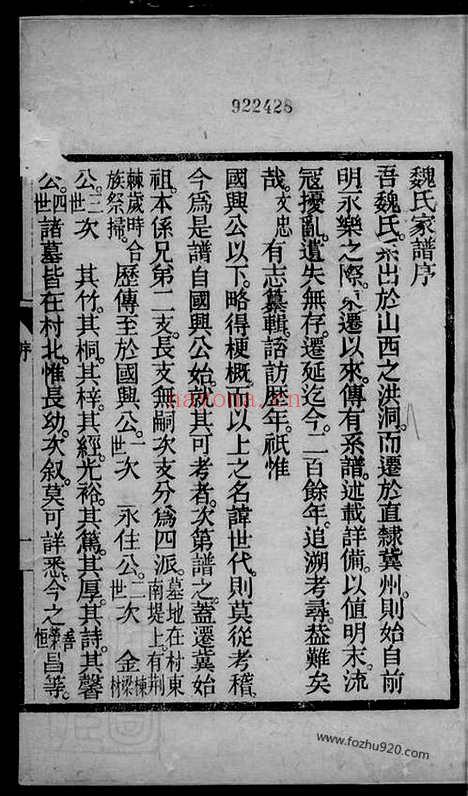 922428
魏氏家譜序
吾魏氏系出於山西之洪洞。而遷於直隸冀州。則始自前
明永樂之際。東遷以來。傳有系譜。述載詳備。以值明末。流
寇擾亂。遺失無存。遷延迄今。二百餘年。追溯考尋。葢難矣
哉。文忠有志纂輯。諮訪歷年。祇惟
國興公以下。略得梗概。而以上之名諱世代。則莫從考稽。
今爲是譜。自國興公始。就其可考者。次第譜之。蓋遷冀始
祖。本係兄弟二支。長支無嗣。次支分爲四派。墓地在村東南堤上。有荆
棘歲時合族祭掃。歷傳至於國興公。一世次永住公。二世次金棟梁材
公。三世次其竹。其桐。其梓。其經。光裕。其篤。其厚。其詩。其馨
公。四世諸墓皆在村北。惟長幼次叙。莫可詳悉。今之善榮恒昌等。
序
一
hayona.cn
www.fozhu920.com